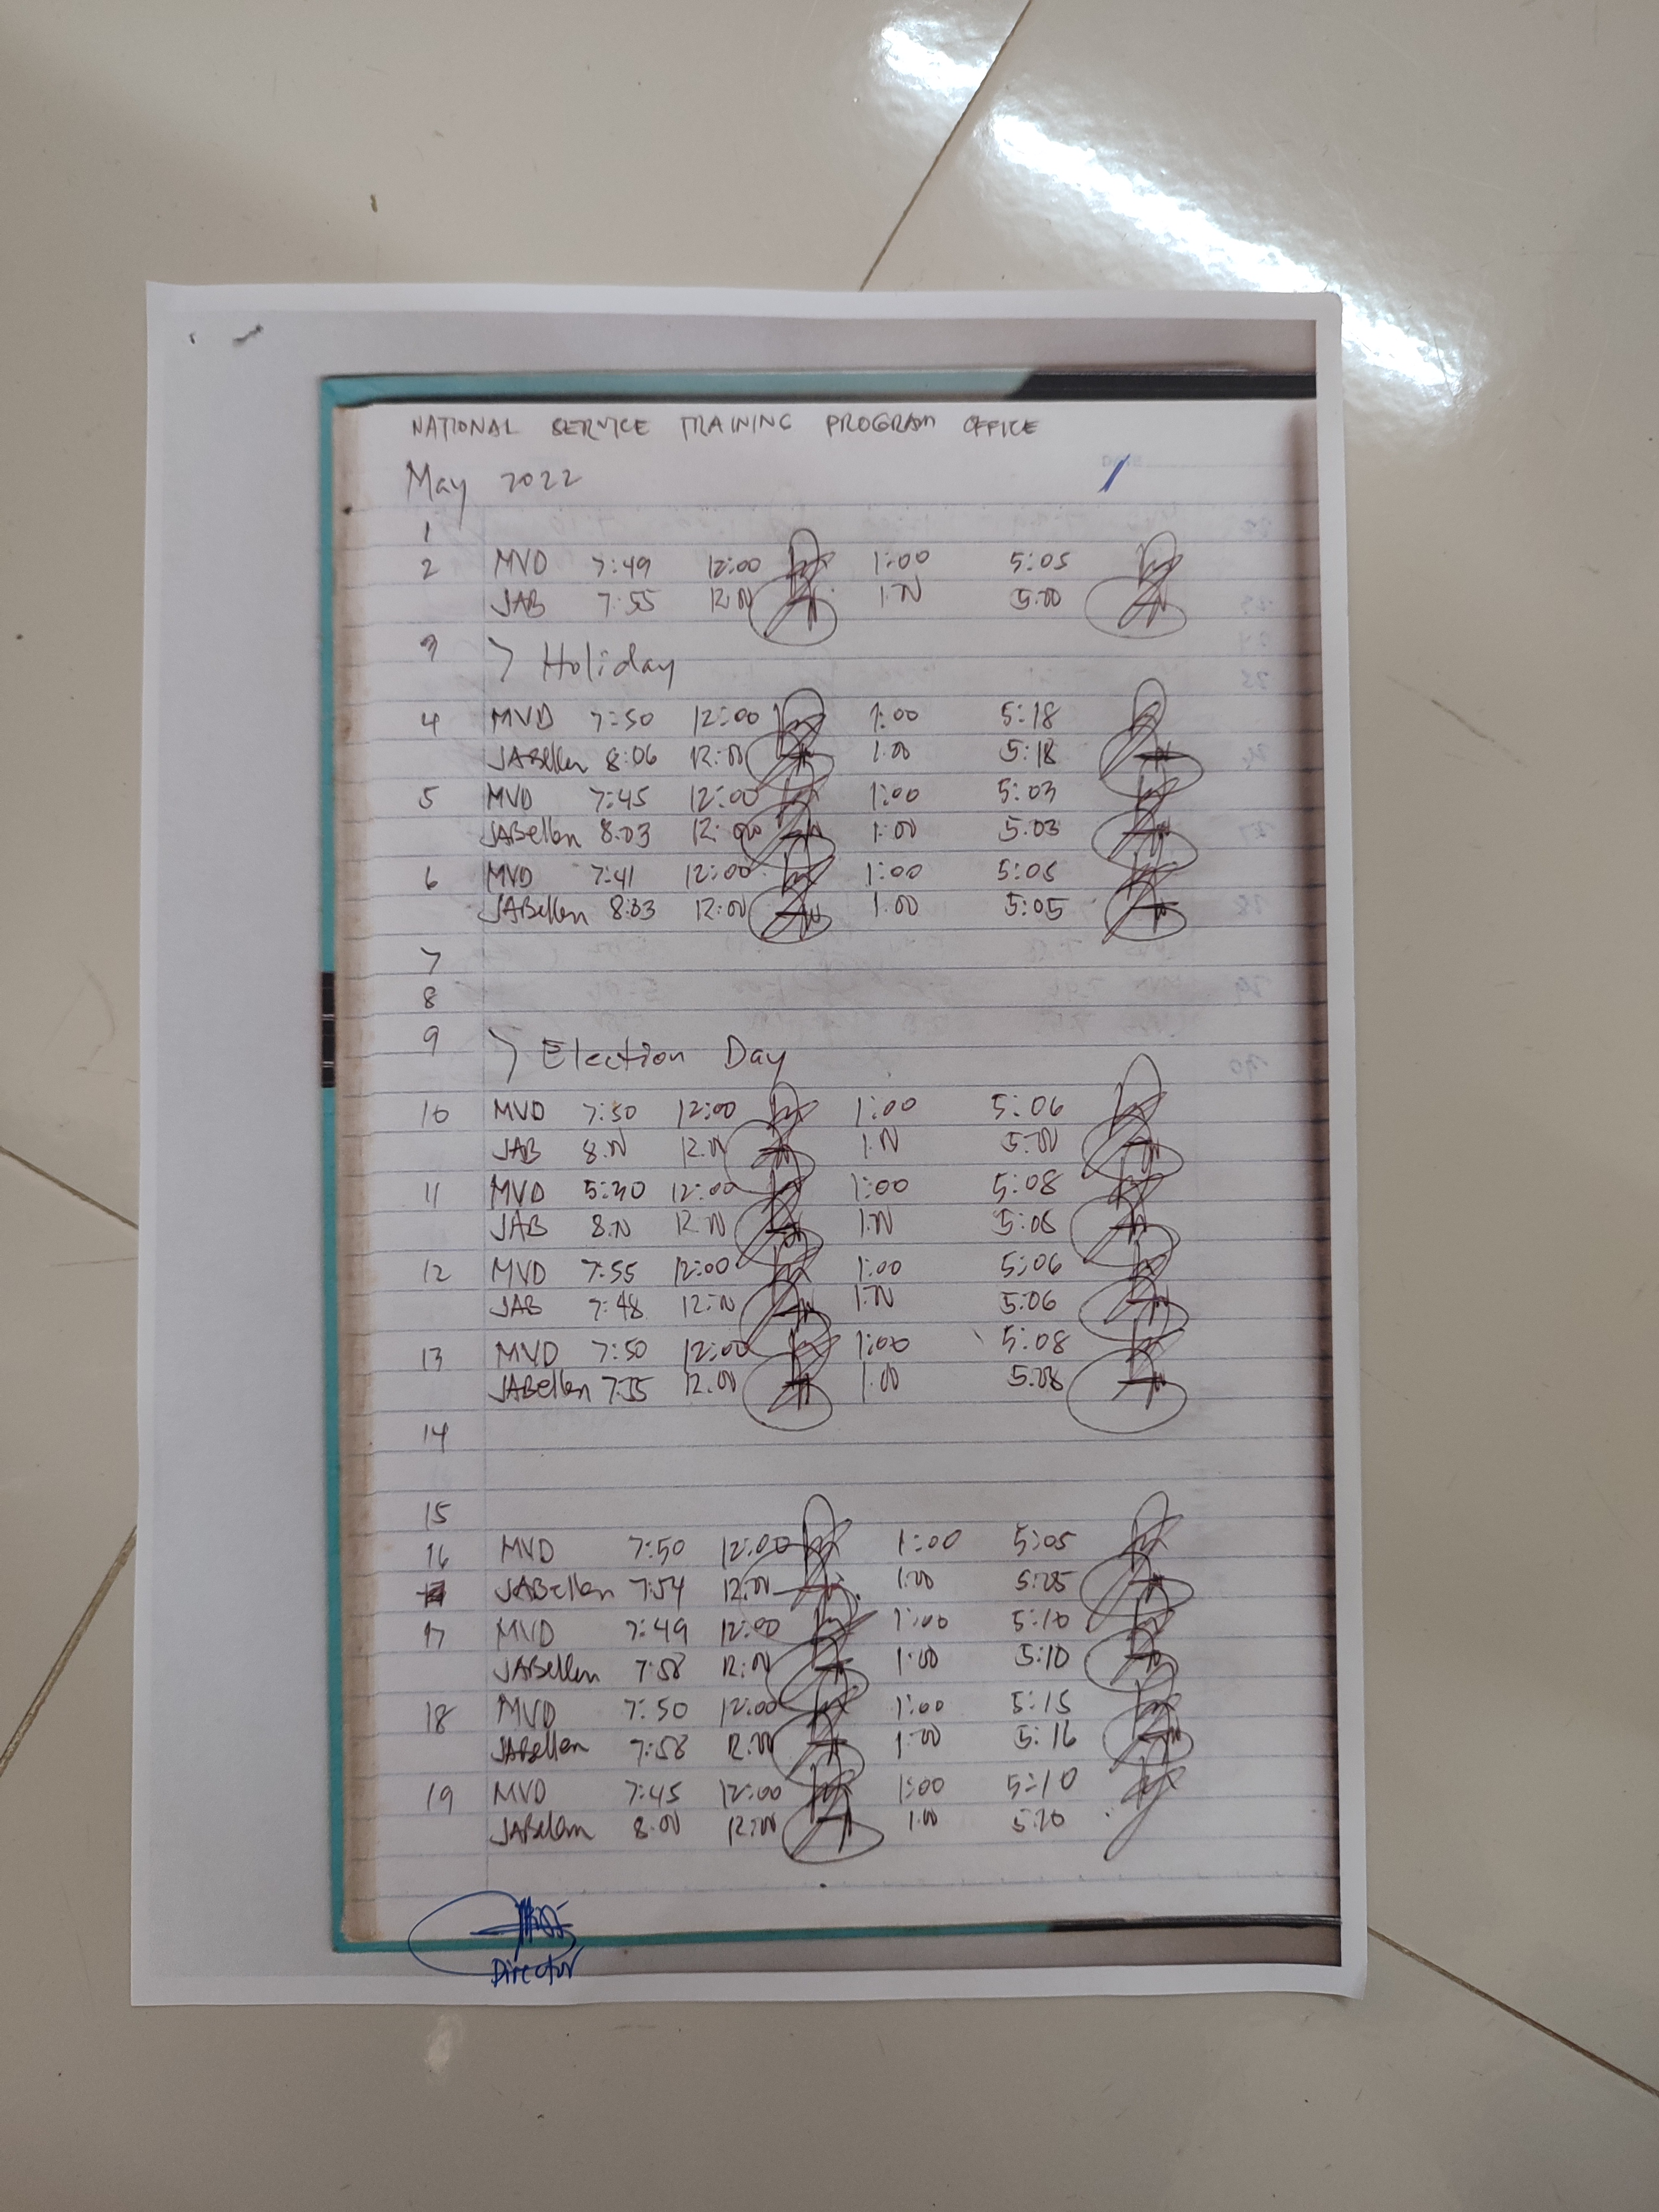 NATIONAL SERVICE TRAINING PROGRAM OFFICE
May 2022
1
2 MVD 7:49 12:00 1:00 5:05
JAB 7:55 12:00 1:00 5:00
3 > Holiday
4 MVD 7:50 12:00 1:00 5:18
JABellen 8:06 12:00 1:00 5:18
5 MVD 7:45 12:00 1:00 5:03
JABellen 8:03 12:00 1:00 5:03
6 MVD 7:41 12:00 1:00 5:05
JABellen 8:03 12:00 1:00 5:05
7
8
9 > Election Day
10 MVD 7:50 12:00 1:00 5:06
JAB 8:00 12:00 1:00 5:00
11 MVD 12:00 1:00 5:08
JAB 8:00 12:00 1:00 5:08
12 MVD 7:55 12:00 1:00 5:06
JAB 7:48 12:00 1:00 5:06
13 MVD 7:50 12:00 1:00 5:08
JABellen 7:55 12:00 1:00 5:08
14
15
16 MVD 7:50 12:00 1:00 5:05
JABellen 7:54 12:00 1:00 5:05
17 MVD 7:49 12:00 1:00 5:10
JABellen 7:58 12:00 1:00 5:10
18 MVD 7:50 12:00 1:00 5:15
JABellen 7:58 12:00 1:00 5:16
19 MVD 7:45 12:00 1:00 5:10
JABellen 8:00 12:00 1:00 5:10
Director